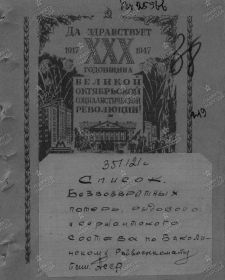 Да здравствует
1917 XXX 1947
годовщина
Великой
Октябрьской
социалистической
революции!
351/21с
Список
Безвозвратных
потерь, рядового
и сержантского
состава по Бакалин-
скому Райвоенкомату